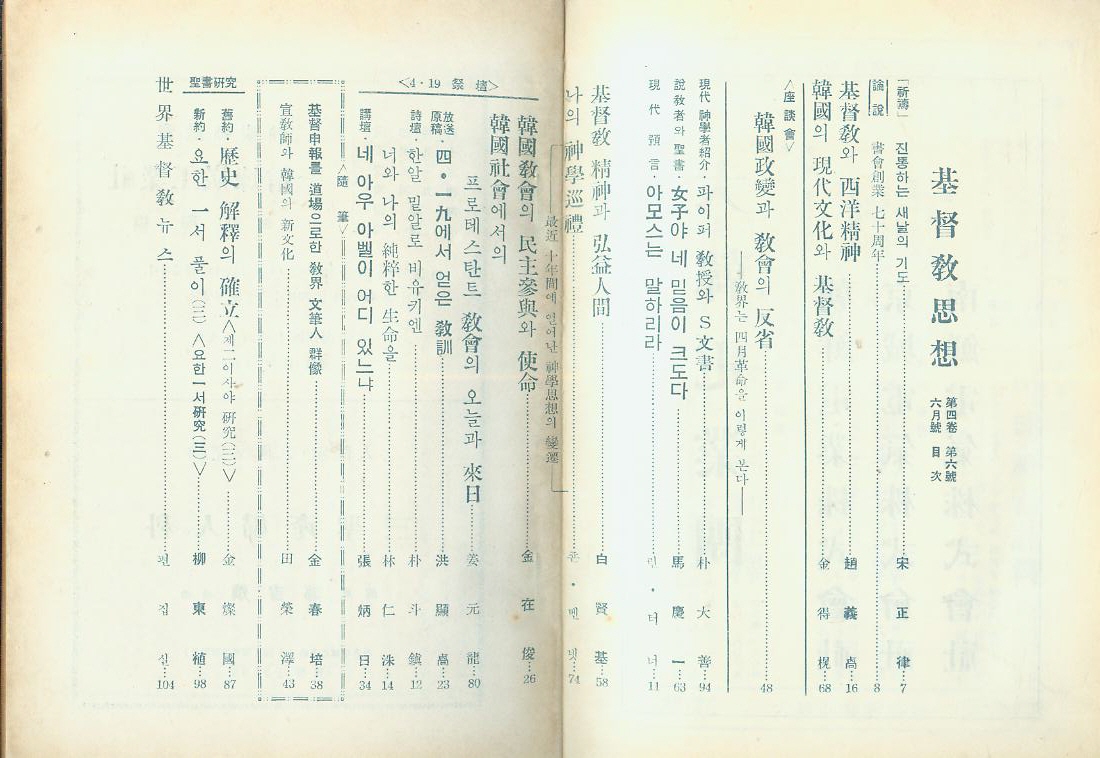 基督敎思想
第四卷 第六號
六月號 目次
「祈禱」 진통하는 새날의 기도 宋正律 7
論說 書會創業 七十周年 8
基督敎와 西洋精神 趙義卨 16
韓國의 現代文化와 基督敎 金得榥 68
〈座談會〉
韓國政變과 敎會의 反省 48
——敎界는 四月革命을 이렇게 본다——
現代 神學者紹介・파이퍼 敎授와 S文書 朴大善 94
說敎者와 聖書・女子야 네 믿음이 크도다 馬慶一 63
現代預言・아모스는 말하리라 터너 11
基督敎 精神과 弘益人間 白賢基 58
나의 神學巡禮 죤・벤넷 74
最近 十年間에 일어난 神學思想의 變遷
〈4・19 祭壇〉
韓國敎會의 民主參與와 使命 金在俊 26
韓國社會에서의
프로테스탄트 敎會의 오늘과 來日 姜元龍 80
放送原稿・四・一九에서 얻은 敎訓 洪顯卨 23
詩壇・한알 밀알로 비유키엔 朴斗鎭 12
너와 나의 純粹한 生命을 林仁洙 14
講壇・네 아우 아벨이 어디 있느냐 張炳日 34
〈隨筆〉
基督申報를 道場으로한 敎界 文筆人 群像 金春培 38
宣敎師와 韓國의 新文化 田榮澤 43
聖書硏究
舊約・歷史 解釋의 確立〈제二이사야 硏究(三)〉 金燦國 87
新約・요한 一서 풀이(三)〈요한一서硏究(三)〉 柳東植 98
世界基督敎뉴스 편집실 104